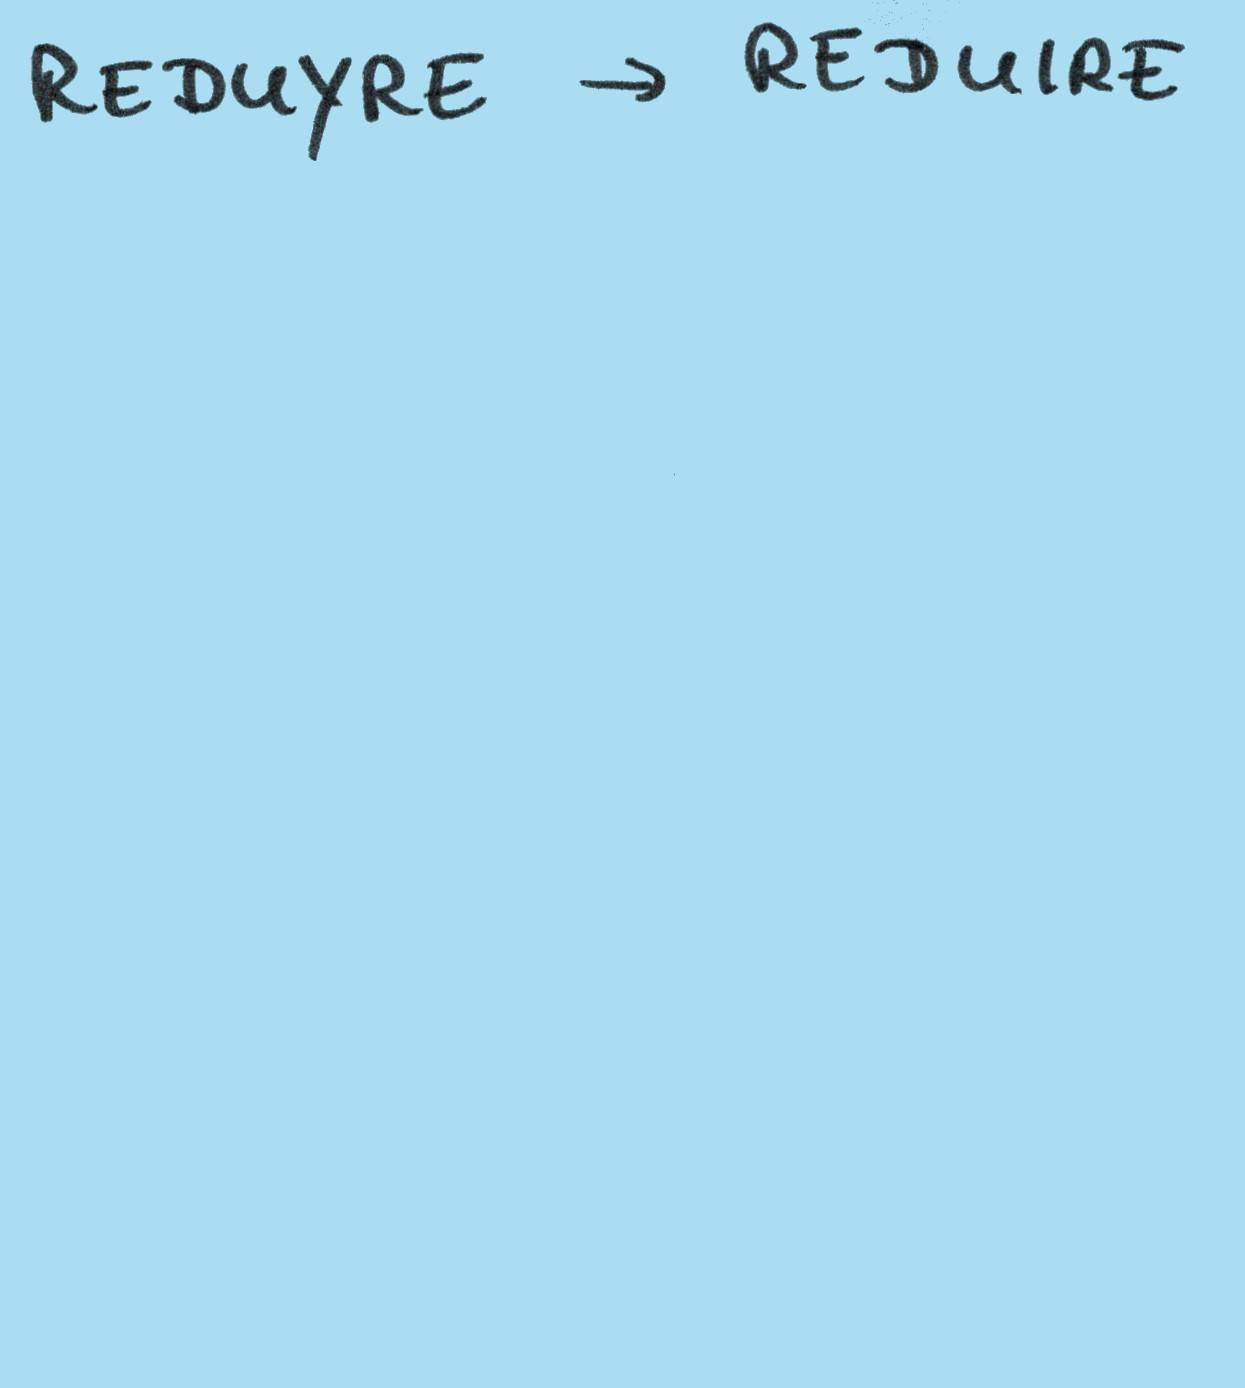 REDUYRE → REDUIRE